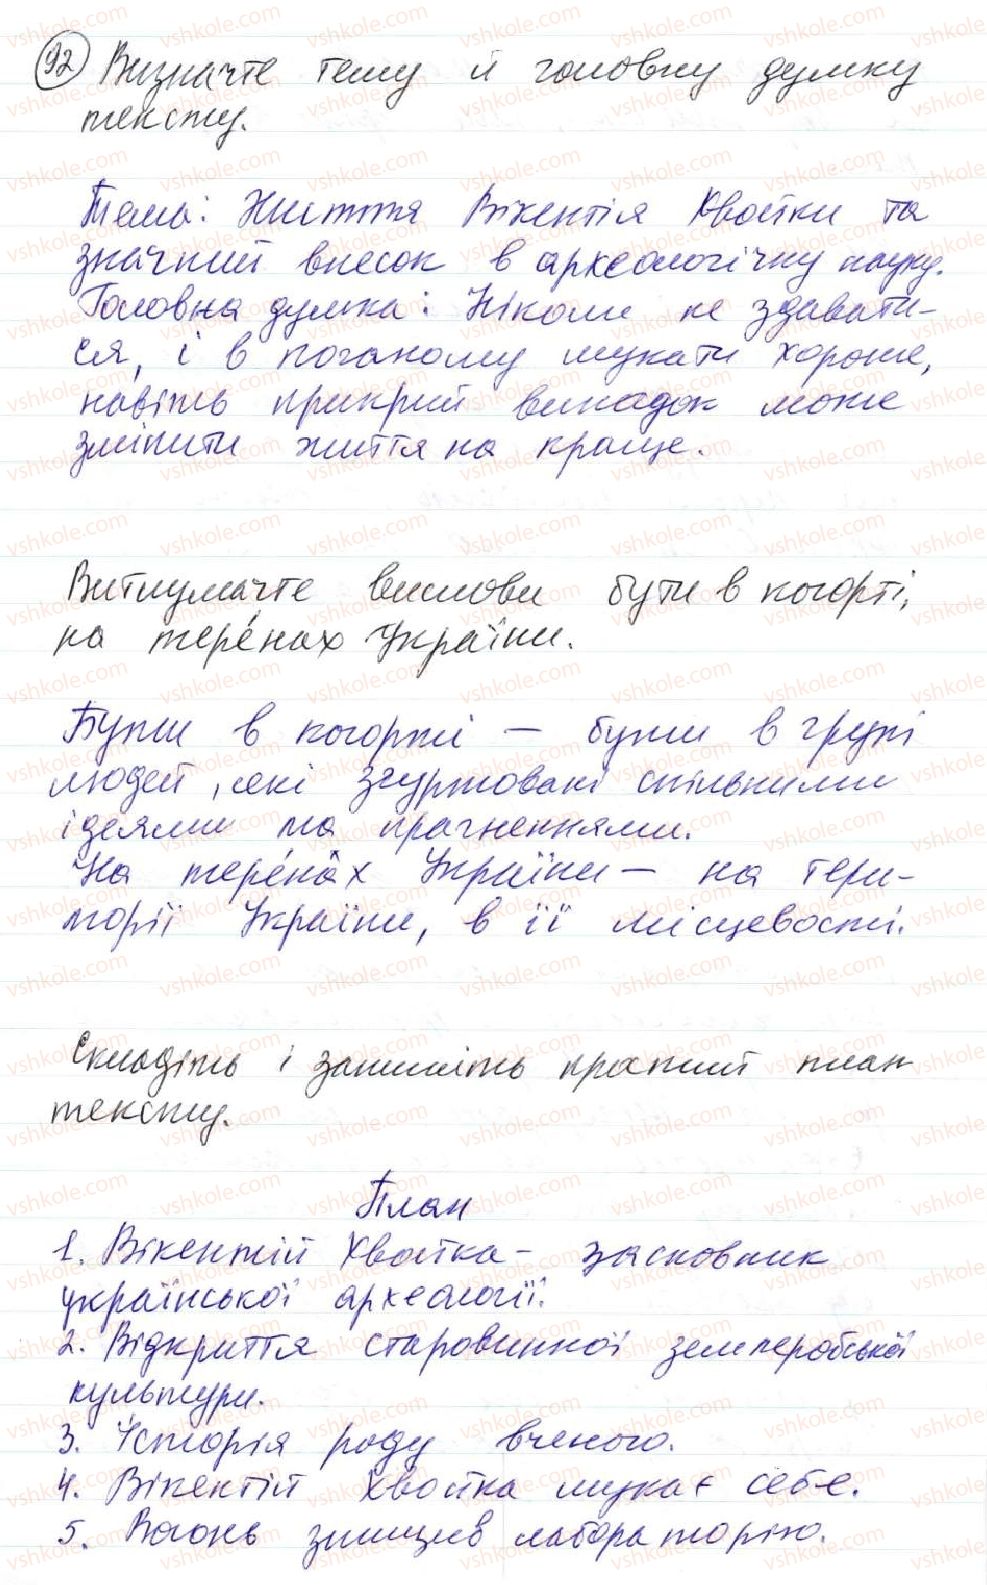 92 Визначте тему й головну думку
тексту.
Тема: Життя Вікентія Хвойки та
значний внесок в археологічну науку.
Головна думка: Ніколи не здавати-
ся, і в поганому шукати хороше,
навіть прикрий випадок може
змінити життя на краще.
Витлумачте вислови бути в когорті,
на тере́нах України.
Бути в когорті – бути в групі
людей, які згуртовані спільними
ідеями та прагненнями.
На тере́нах України – на тери-
торії України, в її місцевості.
Складіть і запишіть простий план
тексту.
План
1. Вікентій Хвойка – засновник
української археології.
2. Відкриття старовинної землеробської
культури.
3. Історія роду вченого.
4. Вікентій Хвойка шукає себе.
5. Вогонь знищив лабораторію.